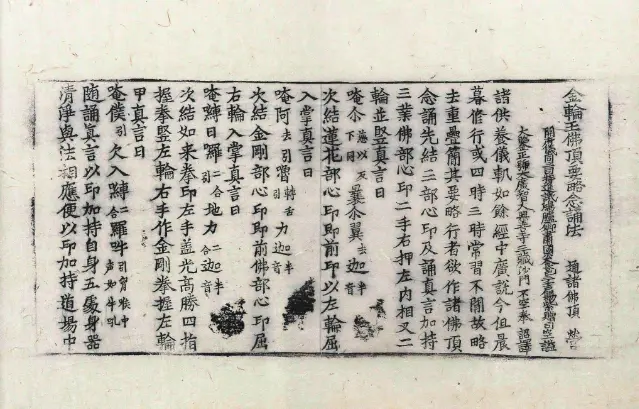 金輪王佛頂要略念誦法 通諸佛頂
開府儀同三司特進試鴻臚卿肅國公食邑三千戶賜紫贈司空謚
大鑒正號大廣智大興善寺三藏沙門不空奉 詔譯
諸供養儀軌如餘經中廣説今但晨
暮脩行或四時三時常習不闕故略
去重疊簡其要略行者欲作諸佛頂
念誦先結三部心印及誦真言加持
三業佛部心印二手右押左内相叉二
輪並竪真言曰
唵尒慈以反下同曩尒翼去迦半音
次結蓮花部心印即前印以左輪屈
入掌真言曰
唵阿去引嚕轉舌力迦半音
次結金剛部心印即前佛部心印屈
右輪入掌真言曰
唵嚩日囉二合引地力二合迦半音
次結如来拳印左手蓋光高勝四指
握拳竪左輪右手作金剛拳握左輪
甲真言曰
唵僕引欠入嚩二合囉吽引胷喉中声如牛吼
随誦真言以印加持自身五處身器
清淨與法相應便以印加持道場中